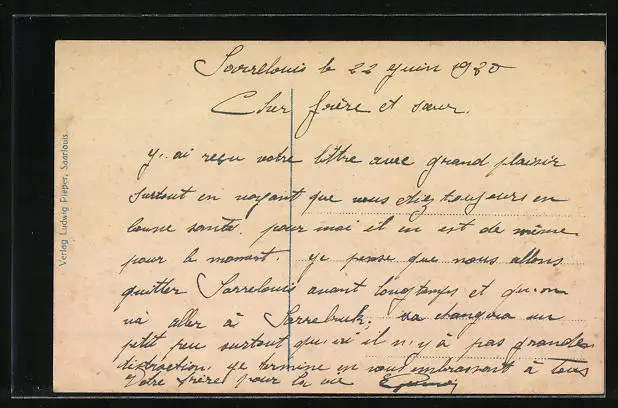 Sarrelouis le 22 juin 1920
Cher frère et sœur.
j'ai reçu votre lettre avec grand plaisir
surtout en voyant que vous étiez toujours en
bonne santé. pour moi il en est de même
pour le moment. je pense que nous allons
quitter Sarrelouis avant longtemps et qu'on
va aller à Sarrebruk; sa changera un
petit peu surtout qu'ici il n'y à pas grande
distraction. je termine en vous embrassant à tous
Votre frère pour la vie
Verlag Ludwig Pieper, Saarlouis.